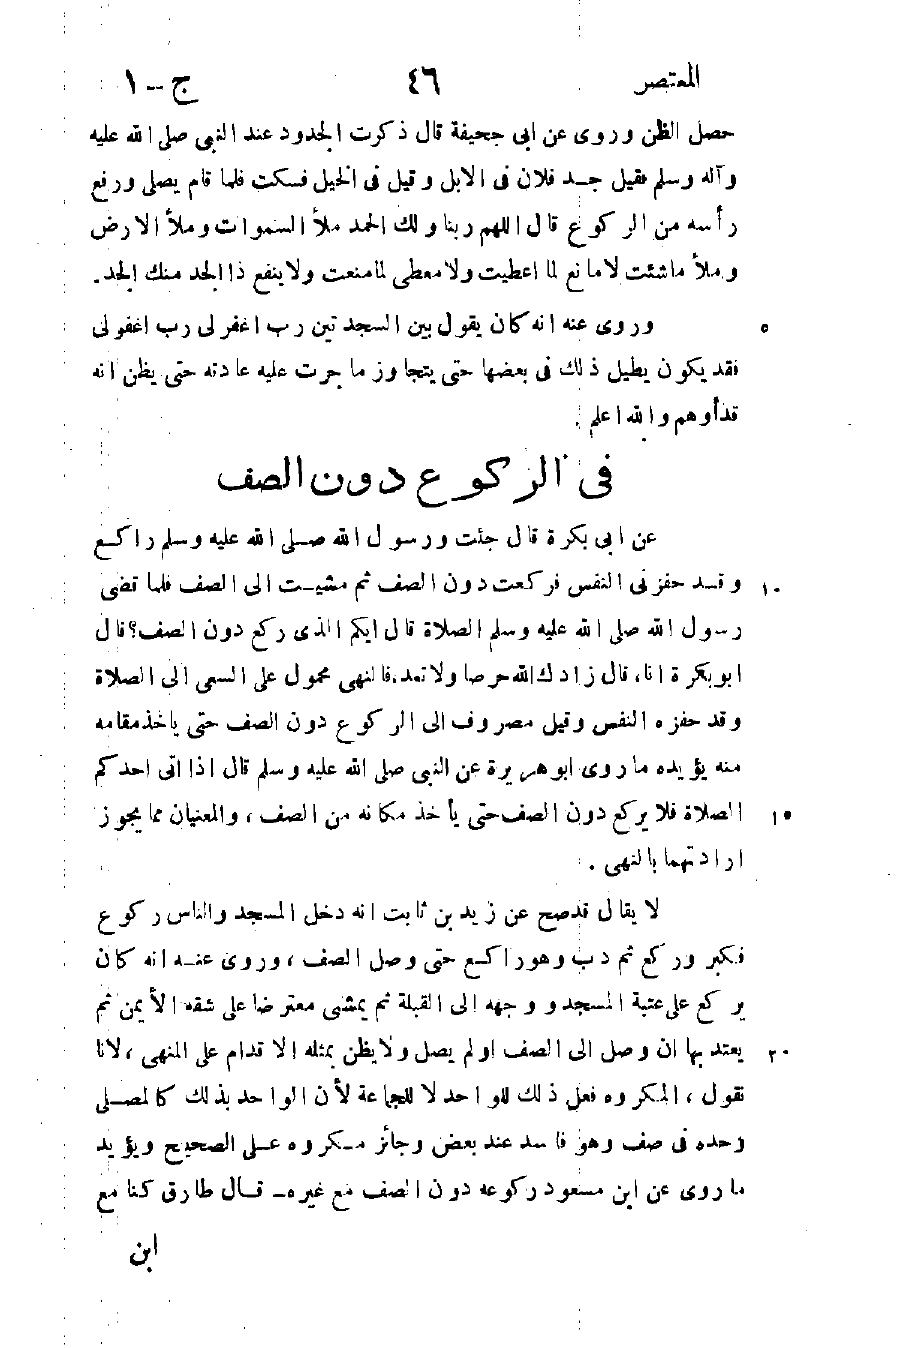 المعتصر ٤٦ ج-١
حصل الظن وروى عن ابى جحيفة قال ذكرت الجدود عند النبى صلى الله عليه
وآله وسلم فقيل جد فلان فى الابل وقيل فى الخيل فسكت فلما قام يصلى ورفع
رأسه من الركوع قال اللهم ربنا ولك الحمد ملأ السموات وملأ الارض
وملأ ماشئت لامانع لما اعطيت ولا معطى لما منعت ولا ينفع ذا الجد منك الجد.
وروى عنه انه كان يقول بين السجدتين رب اغفر لى رب اغفولى ٥
فقد يكون يطيل ذلك فى بعضها حتى يتجاوز ما جرت عليه عادته حتى يظن انه
قد أوهم والله اعلم .
فى الركوع دون الصف
عن ابى بكرة قال جئت ورسول الله صلى الله عليه وسلم راكع
وقد حفزنى النفس فركعت دون الصف ثم مشيت الى الصف فلما قضى ١٠
رسول الله صلى الله عليه وسلم الصلاة قال ايكم الذى ركع دون الصف؟ قال
ابوبكرة انا، قال زادك الله حرصا ولا تعد، فالنهى محمول على السعى الى الصلاة
وقد حفزه النفس وقيل مصروف الى الركوع دون الصف حتى ياخذ مقامه
منه يؤيده ماروى ابو هريرة عن النبى صلى الله عليه وسلم قال اذا اتى احدكم
الصلاة فلا يركع دون الصف حتى يأخذ مكانه من الصف، والمعنيان مما يجوز ١٥
ارادتهما بالنهى .
لا يقال قد صح عن زيد بن ثابت انه دخل المسجد والناس ركوع
فكبر وركع ثم دب وهو راكع حتى وصل الصف، وروى عنه انه كان
يركع على عتبة المسجد ووجهه الى القبلة ثم يمشى معترضا على شقه الأيمن ثم
يعتد بها ان وصل الى الصف اولم يصل ولا يظن بمثله الاقدام على المنهى، لانا ٢٠
نقول، المكروه فعل ذلك للواحد لا للجماعة لأن الواحد بذلك كالمصلى
وحده فى صف وهو فاسد عند بعض وجائز مكروه على الصحيح ويؤيد
ما روى عن ابن مسعود ركوعه دون الصف مع غيره- قال طارق كنا مع
ابن